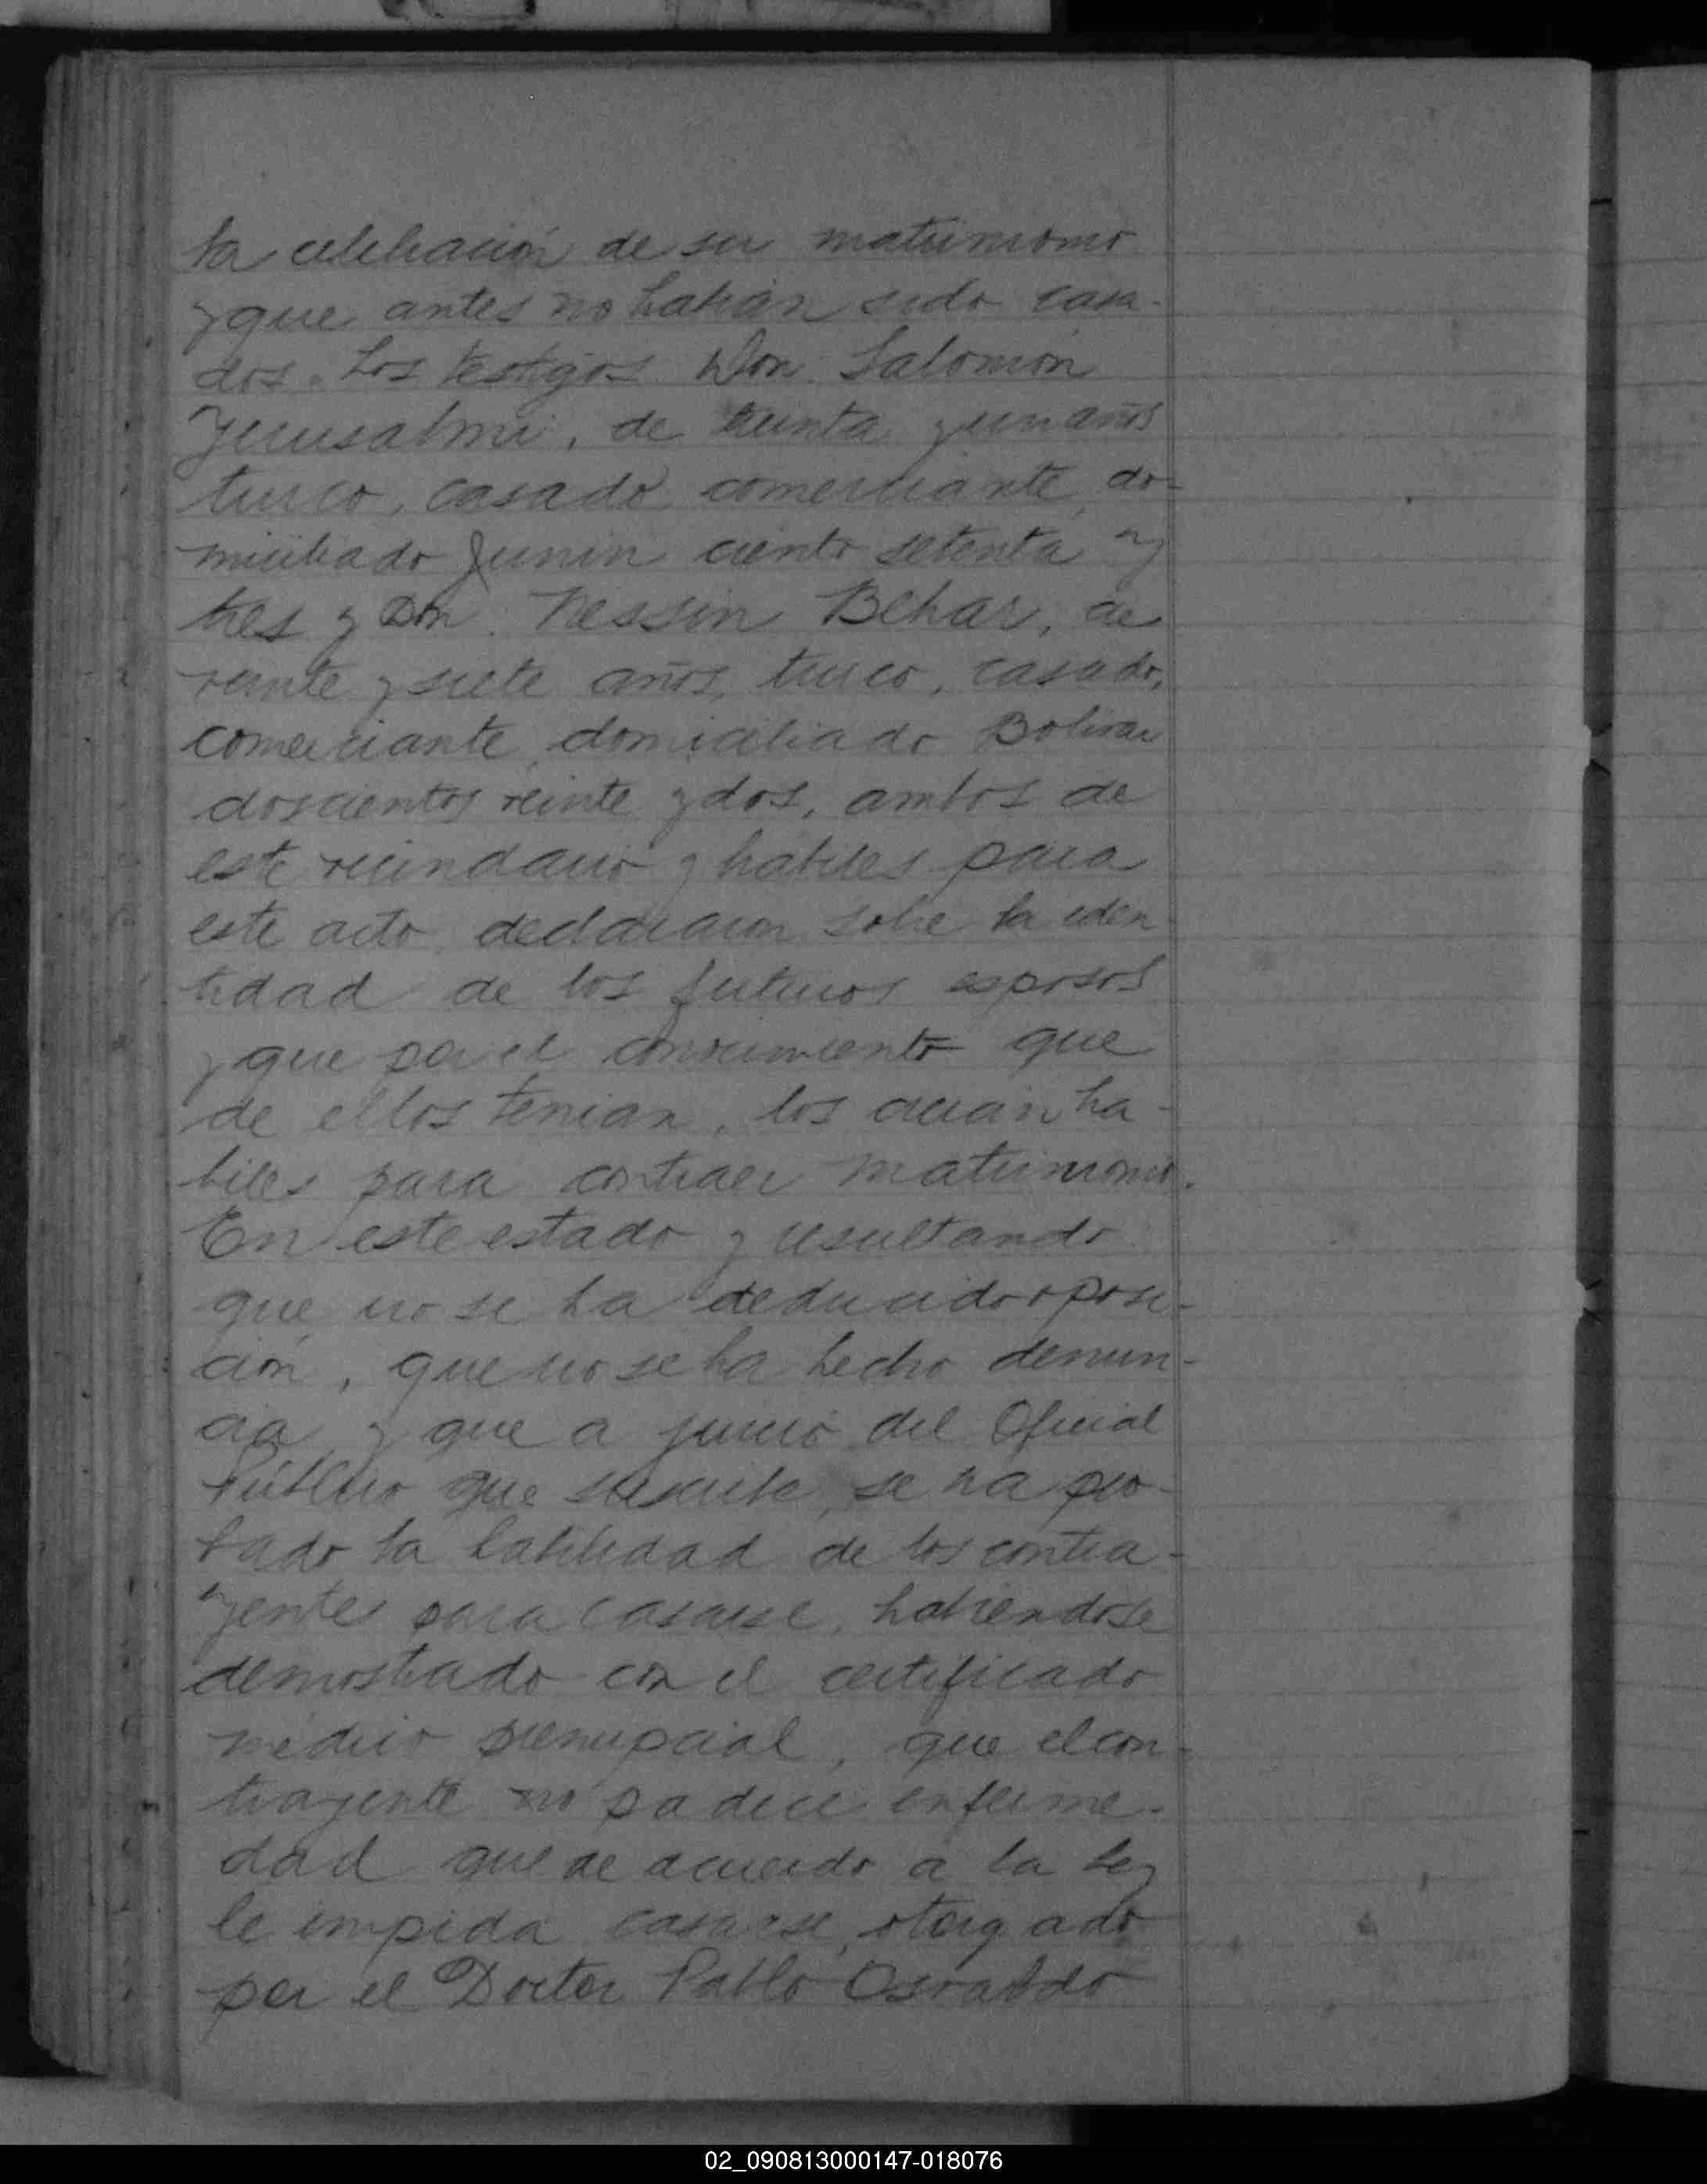 la celebración de su matrimonio
y que antes no habían sido casa-
dos. Los testigos Don Salomón
Yerusalmi, de treinta y un años
turco, casado, comerciante, do-
miciliado Junin ciento setenta y
tres y Don Nessin Behar, de
veinte y siete años, turco, casado,
comerciante, domiciliado Bolivar
doscientos veinte y dos, ambos de
este vecindario y habiles para
este acto, declararon sobre la iden-
tidad de los futuros esposos
y que por el conocimiento que
de ellos tenian, los creian ha-
biles para contraer matrimonio.
En este estado y resultando
que no se ha deducido oposi-
ción, que no se ha hecho denun-
cia, y que a juicio del Oficial
Público que suscribe, se ha pro-
bado la habilidad de los contra-
yentes para casarse, habiendose
demostrado con el certificado
médico prenupcial, que el con-
trayente no padece enferme-
dad que de acuerdo a la ley
le impida casarse, otorgado
por el Doctor Pablo Osvaldo
02_090813000147-018076